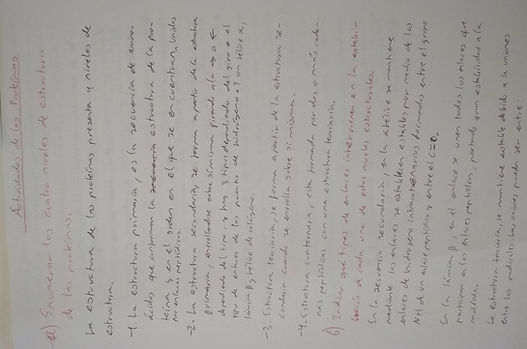 Actividades de las Proteínas
a) Enumerar los cuatro niveles de estructura
de las proteínas.
La estructura de las proteínas presenta 4 niveles de
estructura.
-1. La estructura primaria, es la secuencia de amino-
ácidos que conforman la estructura de la pro-
teína y en el orden en el que se encuentran unidos
por enlaces peptídicos.
-2. La estructura secundaria, se forma a partir de la estructura
primaria enrollándose sobre sí misma girando a la
dependiendo del giro o el
tipo de enlaces de los puentes de hidrógeno. α hélice,
lámina β y hélice de colágeno.
-3. Estructura terciaria, se forma a partir de la estructura se-
cundaria cuando se enrolla sobre sí misma.
-4. Estructura cuaternaria, está formada por dos o más cade-
nas peptídicas con una estructura terciaria.
b) Indica que tipos de enlaces intervienen en la estabili-
zación de cada uno de estos niveles estructurales.
En la secuencia secundaria, en la α hélice se mantiene
mediante los enlaces se establecen estables por medio de los
enlaces de hidrógeno intracatenarios formados entre el grupo
NH de un enlace peptídico y entre el C=O.
En la lámina β, en el enlace se unen todos los enlaces que
participan en los enlaces peptídicos, portando gran estabilidad a la
molécula.
La estructura terciaria, se mantiene estable debido a la uniones
entre los radicales. Las uniones pueden ser entre: